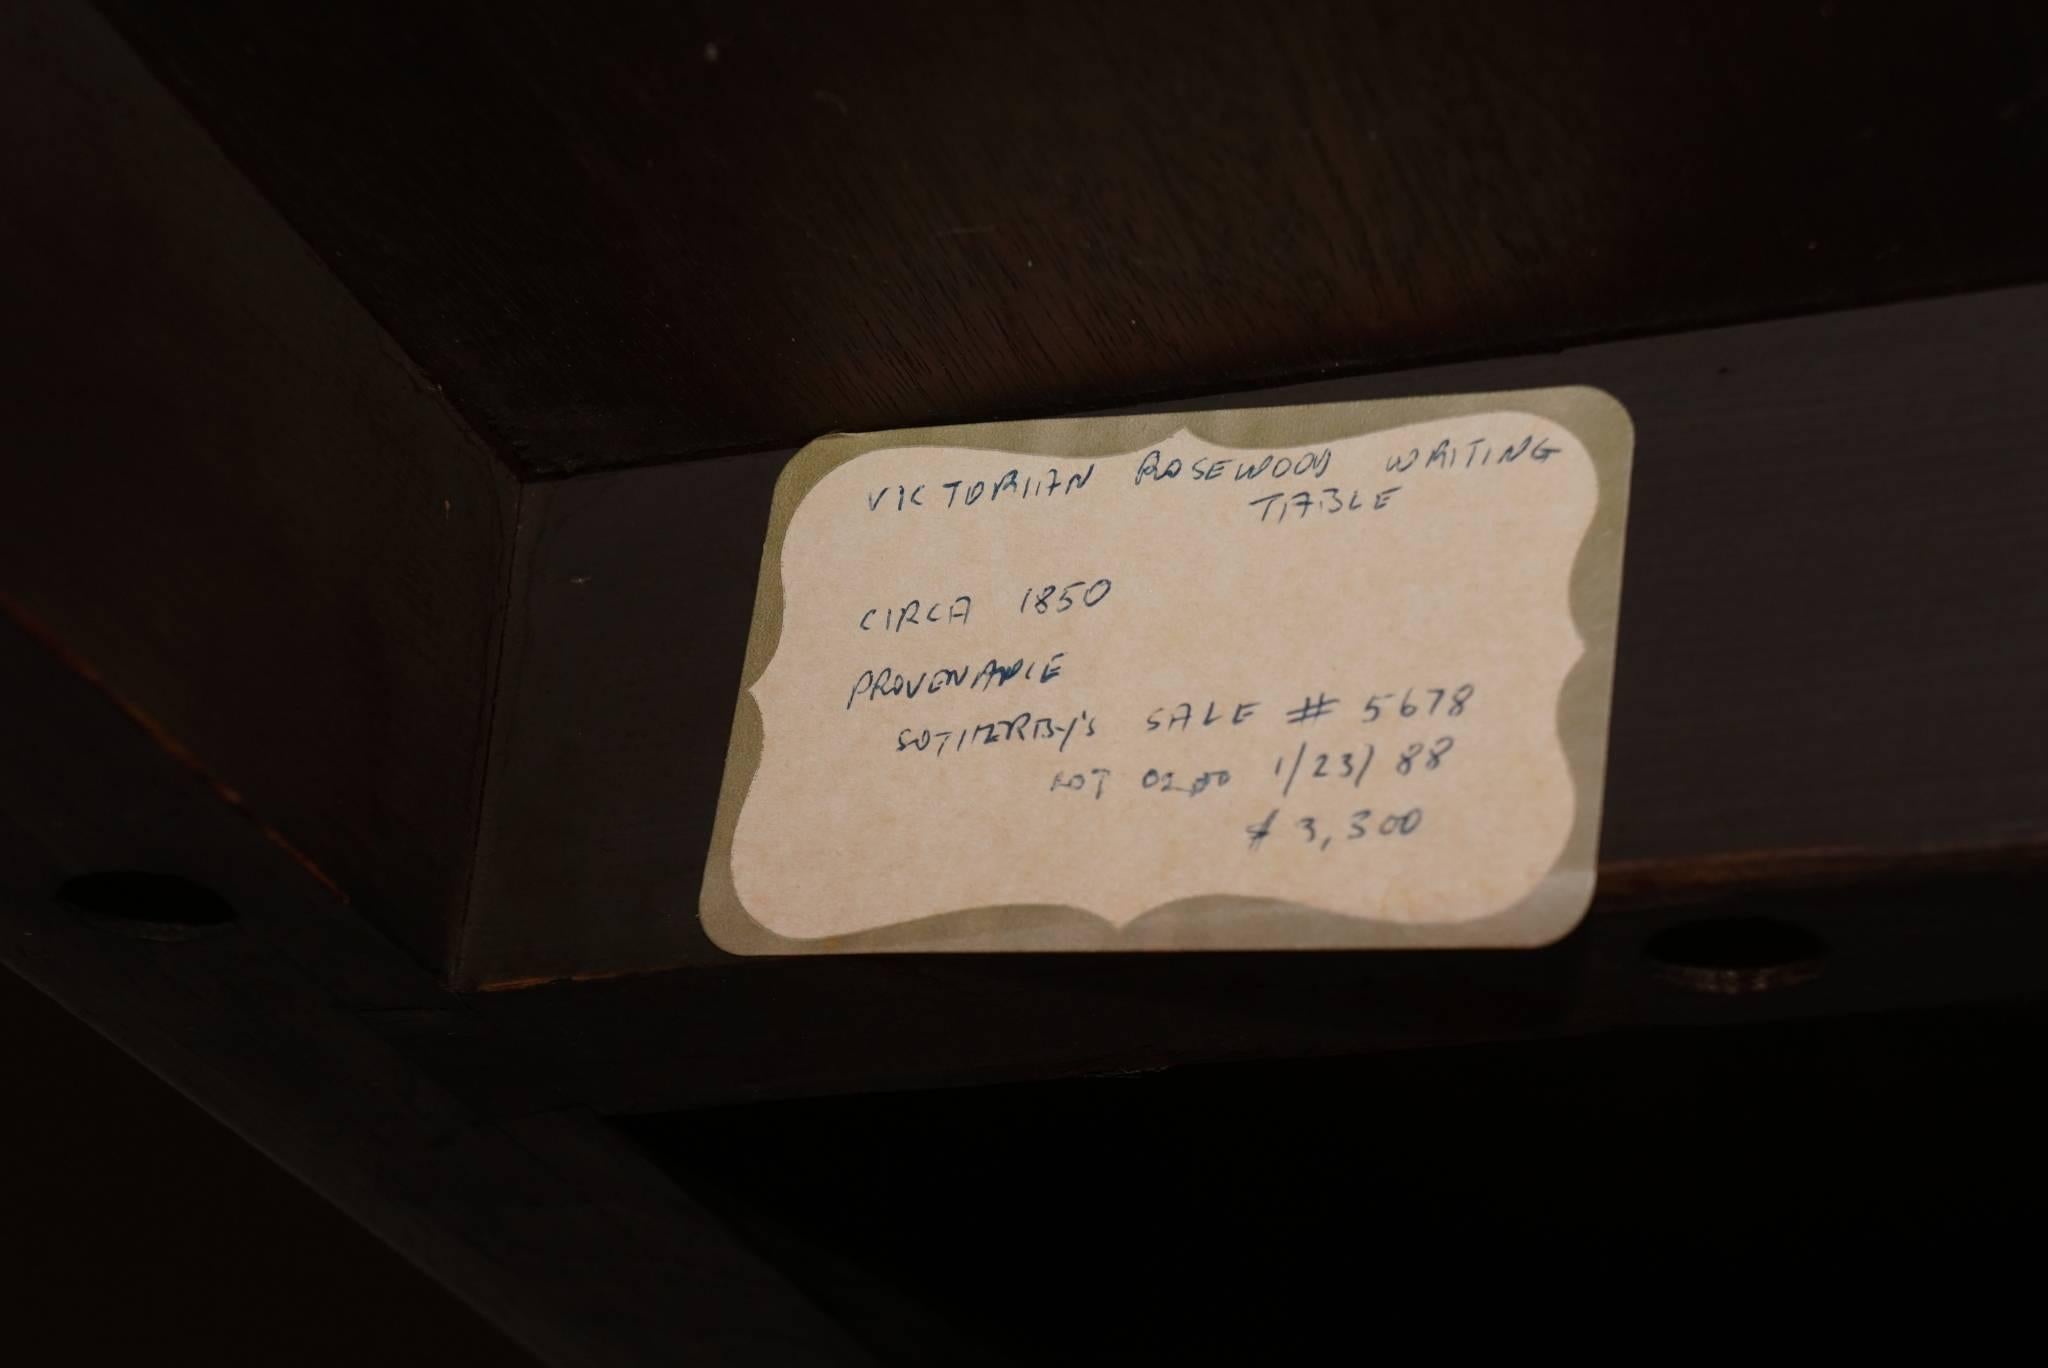 VICTORIAN ROSEWOOD WRITING
TABLE
CIRCA 1850
PROVENANCE
SOTHERBY'S SALE # 5678
LOT 1/23/88
$ 3,300